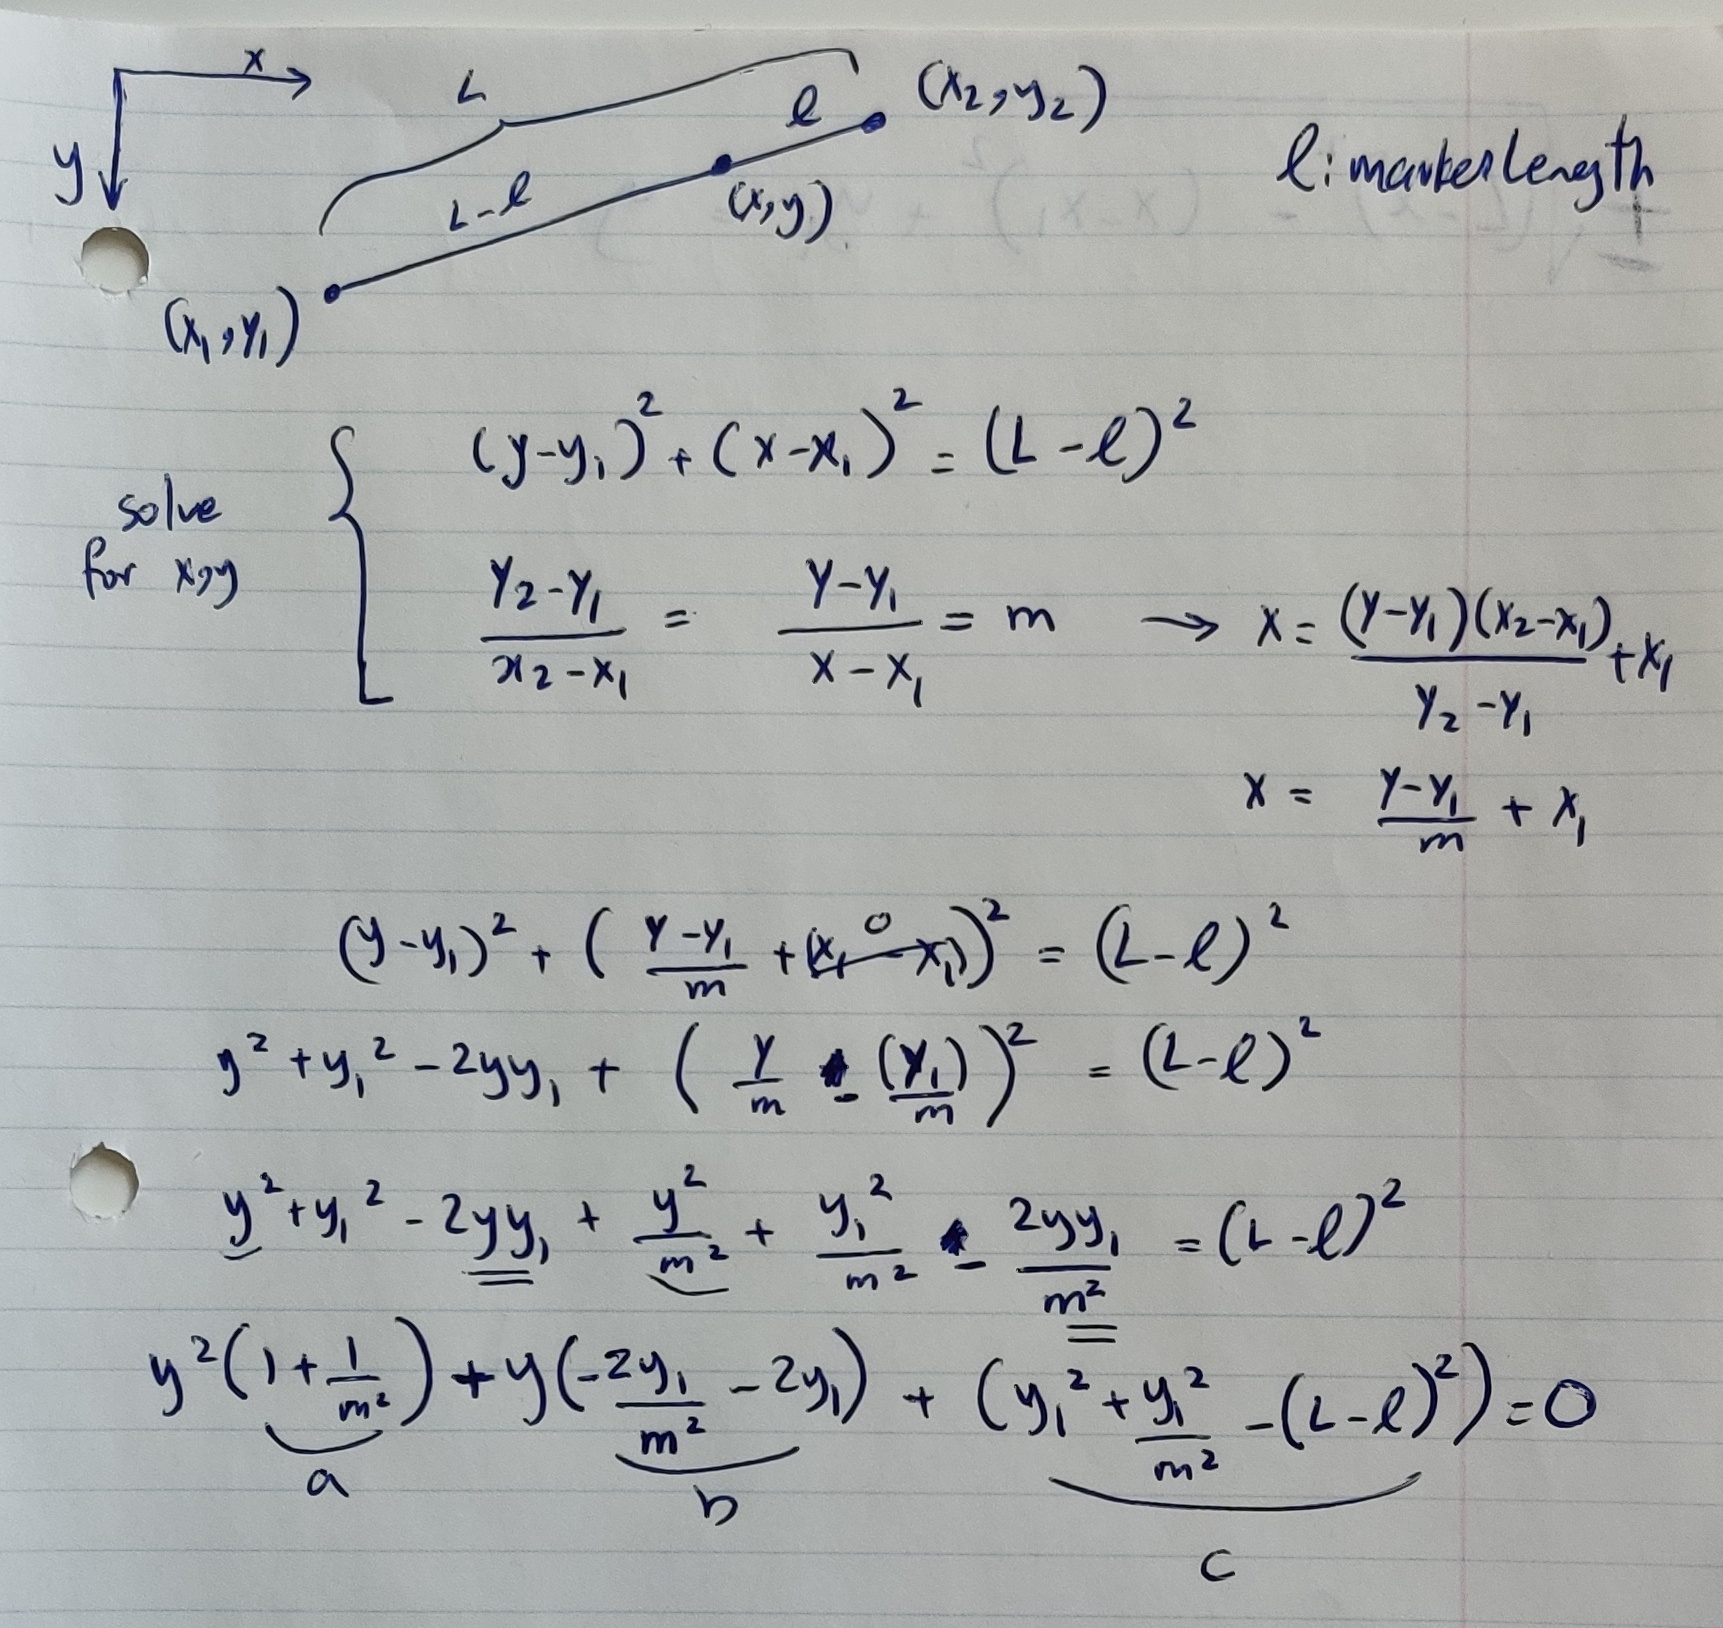 x
y
L
l
(x₂,y₂)
l: marker length
L-l
(x,y)
(x₁,y₁)
(y-y₁)² + (x-x₁)² = (L-l)²
solve
for x,y
(y₂-y₁)/(x₂-x₁) = (y-y₁)/(x-x₁) = m → x = (y-y₁)(x₂-x₁)/(y₂-y₁) + x₁
x = (y-y₁)/m + x₁
(y-y₁)² + ((y-y₁)/m + (x₁-x₁)⁰)² = (L-l)²
y² + y₁² - 2yy₁ + (y/m - (y₁)/m)² = (L-l)²
y² + y₁² - 2yy₁ + y²/m² + y₁²/m² - 2yy₁/m² = (L-l)²
y²(1+1/m²) + y(-2y₁/m² - 2y₁) + (y₁² + y₁²/m² - (L-l)²) = 0
a
b
c